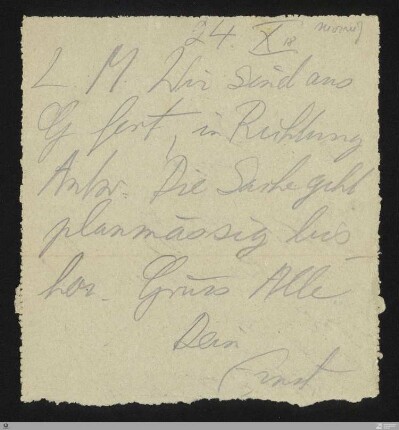 24. X 18
L. M. Wir sind aus
G fort, in Richtung
Antw. Die Sache geht
planmässig bis
her. Gruss Alle
Dein
Ernst